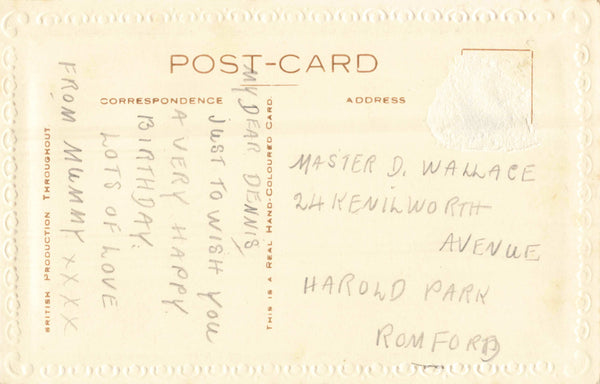 POST-CARD
CORRESPONDENCE
ADDRESS
MY DEAR DENNIS
JUST TO WISH YOU
A VERY HAPPY
BIRTHDAY.
LOTS OF LOVE
FROM MUMMY XXXX
BRITISH PRODUCTION THROUGHOUT
THIS IS A REAL HAND-COLOURED CARD.
MASTER D. WALLACE
24 KENILWORTH
AVENUE
HAROLD PARK
ROMFORD